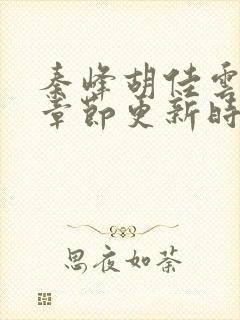 秦峰胡佳雲
章節更新時
思夜如荼